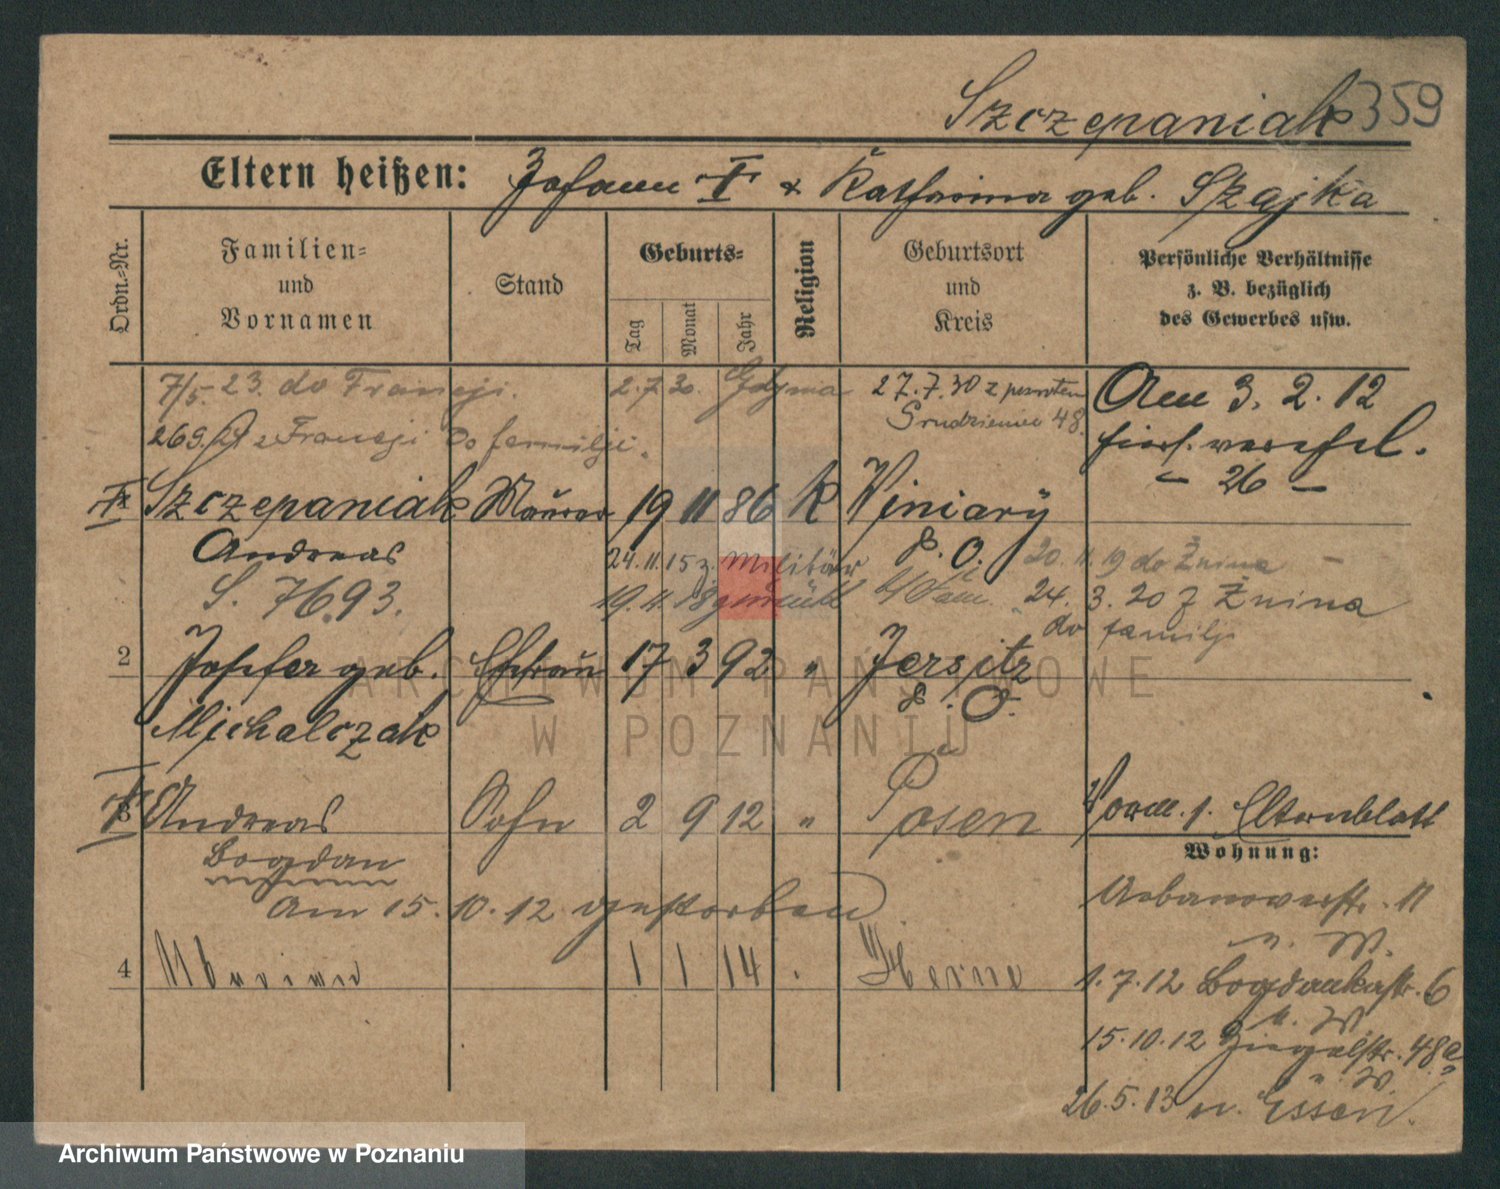 359
Szczepaniak
Eltern heißen: Johann † & Katharina geb. Szajka
Ordn.-Nr.
Familien- und Vornamen
Stand
Geburts-
Tag
Monat
Jahr
Religion
Geburtsort und Kreis
Persönliche Verhältnisse z. B. bezüglich des Gewerbes usw.
7/5. 23. do Francji. 2.7.30. Gdynia 27.7.30 z powrotem
Grudzieniec 48.
26.9. z Francji do familji.
Am 3. 2. 12
hier verehel.
- 26 -
Szczepaniak Maurer 19 11 86 K Winiary
Andreas P. O.
24.11.15 z. Militär 20.11.19 do Żnina
S. 7693.
19.11.18 24. 3. 20 z Żnina
do familji
2 Josefa geb. Ehefrau 17 3 92 " Jersitz
Michalczak P. O.
3 Andreas Sohn 2 9 12 " Posen
Bogdan
Am 15. 10. 12 gestorben
Vorm. s. Elternblatt
Wohnung:
Urbanowerstr. 11
n. W.
4 Marian 1 1 14 . Herne
1.7.12 Bogdankastr. 6
n. W.
15.10.12 Ziegelstr. 48a
n. W.
26.5.13 n. Essen.
ARCHIWUM PAŃSTWOWE
W POZNANIU
Archiwum Państwowe w Poznaniu